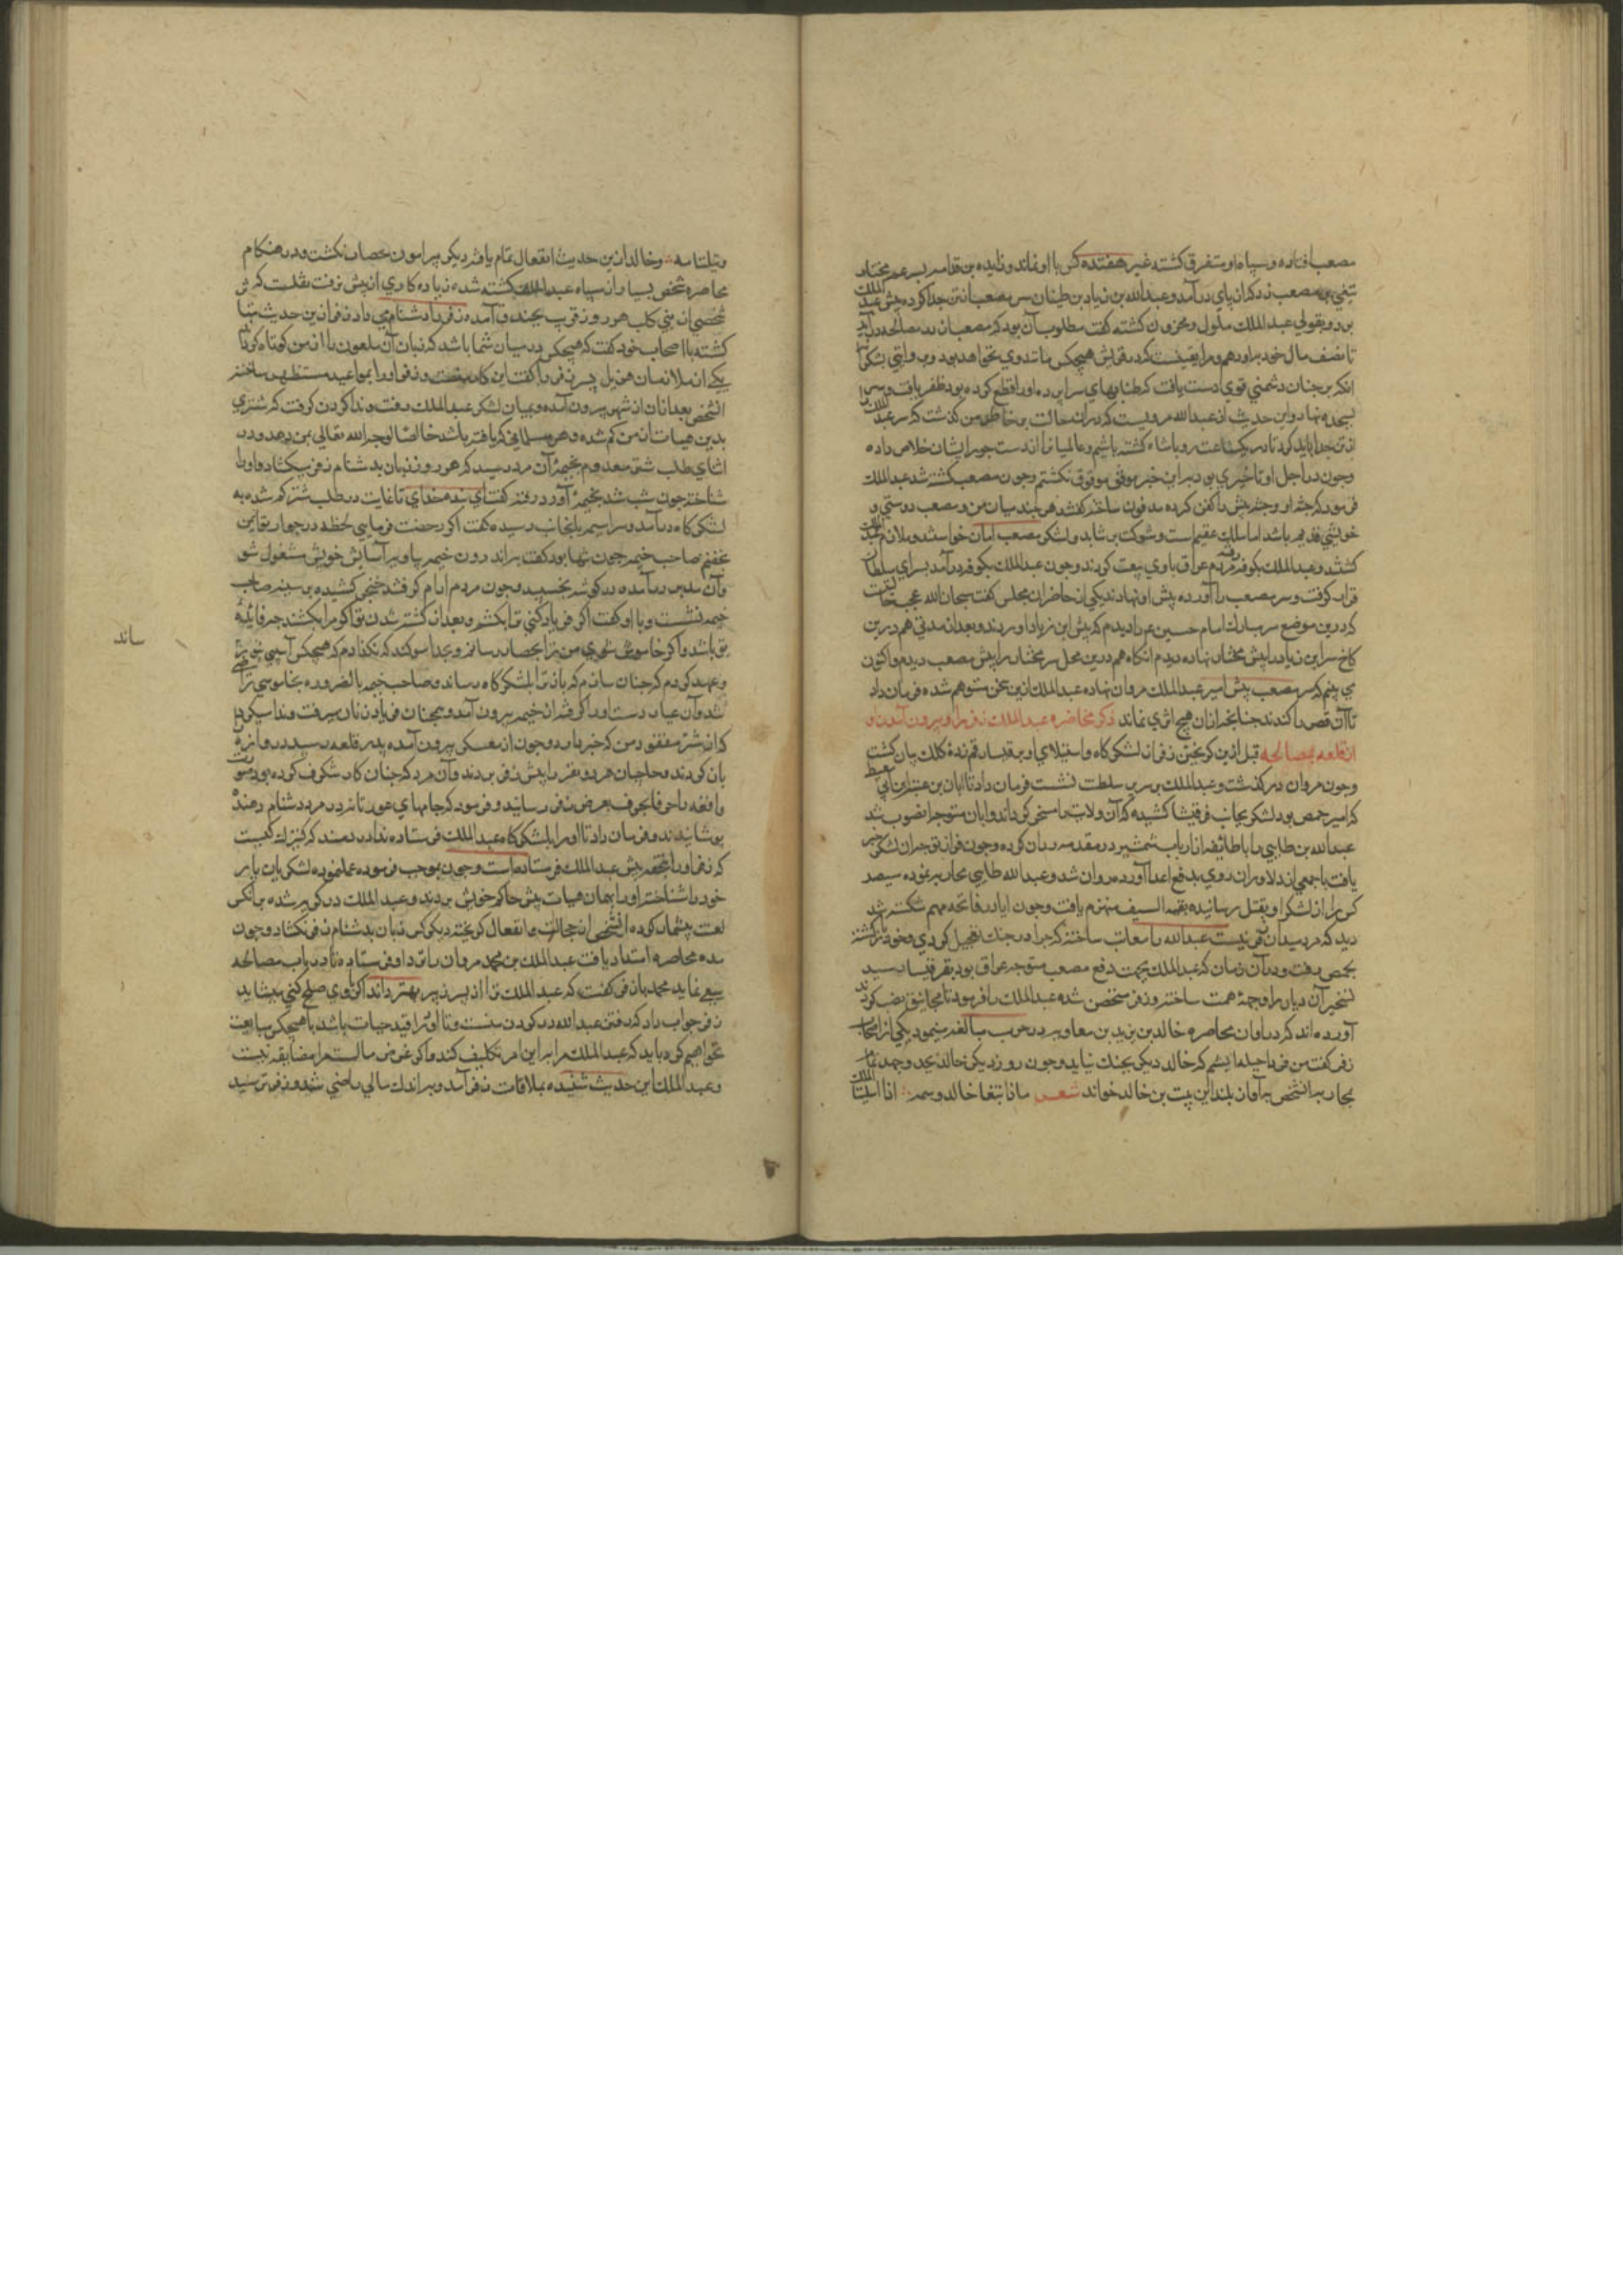 مصعب افتاده و سپاه او متفرق کشته غیر هفتده کس با او نماند و زایده بن قدامه پسر عم مختار
ثقفی بر مصعب زد که از پای در آمد و عبدالله بن زیاد بن ظبیان سر مصعب از تن جدا کرده پیش عبد الملک
برد و بقولی عبد الملک ملول و محزون کشته کفت مطلوب آن بود که مصعب از در مصالحه در آید
تا نصف مال خود برادر هم و مرا یقینست که در قریش هیچکس مانند وی نخواهد بود و بروایتی بشکر
انکه بر چنان دشمنی قوی دست یافت که طنابهای سراپرده او را قطع کرده بود ظفر یافت و سر
بسجده نهاد و این حدیث از عبدالله مرویست که در ان حالت بر خاطر من کذشت که سر عبد الملک
از تن جدا باید کرد تا در یکساعت دو پادشاه کشته باشیم و عالمیان را از دست جور ایشان خلاص داده
و چون در اجل او تاخیری بود بر این خبر موفق نکشتم و چون مصعب کشته شد عبد الملک
فرمود که جثه او و جثه پسرش را کفن کرده مدفون ساختند و کفت هر چند میان من و مصعب دوستی و
خویشی قدیم باشد اما الملک عقیم است و شوکت بر نتابد و لشکر مصعب امان خواستند و ملازم عبد الملک
کشتند و عبد الملک بکوفه رفته مردم عراق با وی بیعت کردند و چون عبد الملک بکوفه در آمد بسرای سلطان
قرار کرفت و سر مصعب را آورده پیش او نهادند یکی از حاضران مجلس کفت سبحان الله عجب حالتیست
که درین موضع سر مبارک امام حسین ع م را دیدم که پیش ابن زیاد آوردند و بعد از مدتی هم درین
کاخ سر ابن زیاد را پیش مختار نهاده دیدم انکاه هم درین محل سر مختار را پیش مصعب دیدم و اکنون
می بینم که سر مصعب پیش امیر عبد الملک مروان نهاده عبد الملک ازین سخن متوهم شده فرمان داد
تا آن قصر را کندند چنانچه از ان هیچ اثری نماند ذکر محاصره عبد الملک زفر را و بیرون آمدن او
از قلعه بمصالحه قبل ازین کریختن زفر از لشکر کاه و استیلای او بر قدیار رقم زده کلک بیان کشت
و چون مروان در کذشت و عبد الملک بر سریر سلطنت نشست فرمان داد تا ابان بن عقبه بن ابی معیط
که امیر حمص بود لشکر بجانب قرقیسا کشیده که آن ولایت را مسخر کرداند و ابان متوجه انصوب شد
عبدالله بن طایی را با طایفه از ارباب شمشیر در مقدمه روان کرده و چون زفر از توجه ان لشکر خبر
یافت با جمعی از دلاوران روی بدفع اعدا آورده روان شد و عبدالله طایی محاربه نموده سیصد
کس را از لشکر او بقتل رسانیده بقیه السیف منهزم یافت و چون ابان در فاتحه مهم شکسته شد
دید که مرد میدان زفر نیست عبدالله را معاتب ساخته که چرا در جنک تعجیل کردی و خود باز کشته
بحمص رفت و در آن زمان که عبد الملک بجهت دفع مصعب متوجه عراق بود بقرقیسا رسید
تسخیر آن دیار را وجهه همت ساخته و زفر متحصن شده عبد الملک را فرمود تا مجانیق نصب کردند
آورده اند که در اوان محاصره خالد بن یزید بن معاویه در حرب مبالغه مینمود یکی از اصحاب
زفر کفت من فردا حیله اندیشم که خالد دیکر بجنک نیاید و چون روز دیکر خالد بجد و جهد تمام
بحار به انشخص بآواز بلند این بیت بن خالد خواند شعر ماذا ابتغاء خالد و همه اذا الملک
وتیلت امه و خالد ازین حدیث انفعال تمام یافته دیکر پیرامون حصار نکشت و در هنکام
محاصره شخص بسیار از سپاه عبد الملک کشته شده زیاده کاری از پیش نرفت نقلست که
شخصی از بنی کلب هر روز قریب بخندق آمده زفر را دشنام می داد زفر از ین حدیث متاثر
کشته با اصحاب خود کفت که هیچکس در میان شما باشد که زبان آن ملعون را از من کوتاه کرداند
یکی از ملازمان هذیل پسر زفر را کفت این کار منست و زفر او را بمواعید مستظهر ساخته
انشخص بعد از ان از شهر بیرون آمده و میان لشکر عبد الملک رفت و ندا کردن کرفت که شتری
بدین هیات از من کم شده و هر مسلمانی که یافته باشد خالصا لوجه الله تعالی بمن دهد و در
اثنای طلب شتر معدوم بخیمه آن مرد رسید که هر روز زبان بدشنام زفر میکشاد و او را
شناخته چون شب شد بخیمه آورد رفته کفت ای بنده خدای تا غایت در طلب شتر کم شده به
لشکر کاه در آمد و سراسیمه باینجانب رسیده کفت اکر رخصت فرمایی لحظه در جوار تو ایمن
غنیم صاحب خیمه چون تنها بود کفت براند رون خیمه بیا و بر آسایش خویش مشغول شو
و آن مدبر در آمده در کوشه بخسبید و چون مردم آرام کرفتند خنجر کشیده بر سینه صاحب
خیمه نشست و با او کفت اکر فریاد کنی ترا بکشم و بعد از کشته شدن تو اکر مرا بکشند چه فایده
تو باشد و اکر خاموش شوی من ترا بحصار رسانم و بخدا سوکند که نکذارم که هیچکس آسیبی بتو رساند
و عهد کردم که چنان سازم که باز ترا بلشکر کاه رساند و صاحب خیمه بالضروره بخاموشی راضی
شد و آن عیار دست او را کرفته از خیمه بیرون آمد و همچنان فریاد زنان میرفت و ندا میکرد
که از شتر مفقود من که خبر دارد و چون از معسکر بیرون آمده بدر قلعه رسید دروازه
باز کردند و حاجبان هر دو نفر را پیش زفر بردند و آن مرد که چنان کار شکرف کرده بود صورت
واقعه را حرفا بحرف بعرض زفر رسانید و فرمود که جامهای عورتانه در مرد دشنام دهنده
پوشانیدند و فرمان داد تا او را بلشکر کاه عبد الملک فرستاده ندا در دهند که کنیزک کیست
که زفر او را بتحفه پیش عبد الملک فرستاده است و چون بموجب فرموده عمل نموده لشکریان یار
خود را شناخته او را بهمان هیات پیش حاکم خویش بردند و عبد الملک در کریه شده بر انکس
لعنت بیشمار کرده انشخص از خجالت و انفعال کریخته دیکر کس زبان بدشنام زفر نکشاد و چون
مده محاصره امتداد یافت عبد الملک بن محمد مروان را نزد او فرستاده تا در باب مصالحه
سعی نماید محمد با زفر کفت که عبد الملک ترا از پسر زبیر بهتر داند اکر با وی صلح کنی میشاید
زفر جواب داد که رفتن عبدالله در کردن منست و تا او در قید حیات باشد با هیچکس مبایعت
نخواهم کرد باید که عبد الملک مرا بر این امر تکلیف نکند و اکر غرض مالست مرا مضایقه نیست
و عبد الملک این حدیث شنیده بملاقات زفر آمد و براندک مالی راضی شد و زفر ترسید
ساند